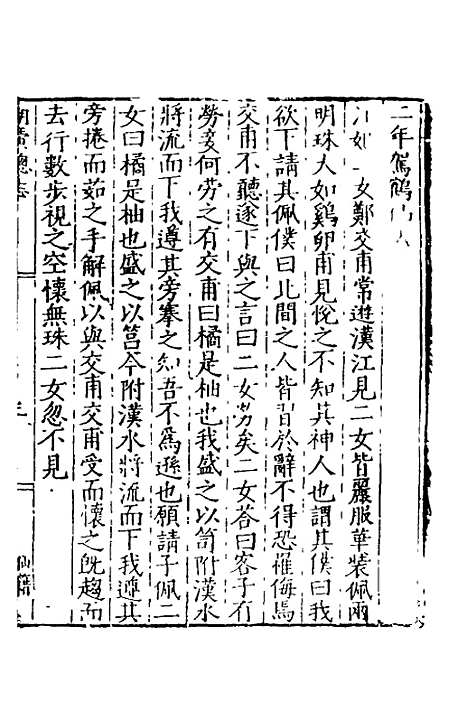 二年駕鶴仙人
女鄭交甫常遊漢江見二女皆麗服華裝佩兩
明珠大如鷄卵甫見悅之不知其神人也謂其僕曰我
欲下請其佩僕曰此間之人皆習於辭不得恐罹侮焉
交甫不聽遂下與之言曰二女勞矣二女答曰客子有
勞妾何勞之有交甫曰橘是柚也我盛之以笥附漢水
將流而下我遵其旁搴之知吾不爲遜也願請子佩二
女曰橘是柚也盛之以莒今附漢水將流而下我遵其
旁捲而茹之手解佩以與交甫交甫受而懷之旣趨而
去行數步視之空懷無珠二女忽不見
湖廣總志
仙釋